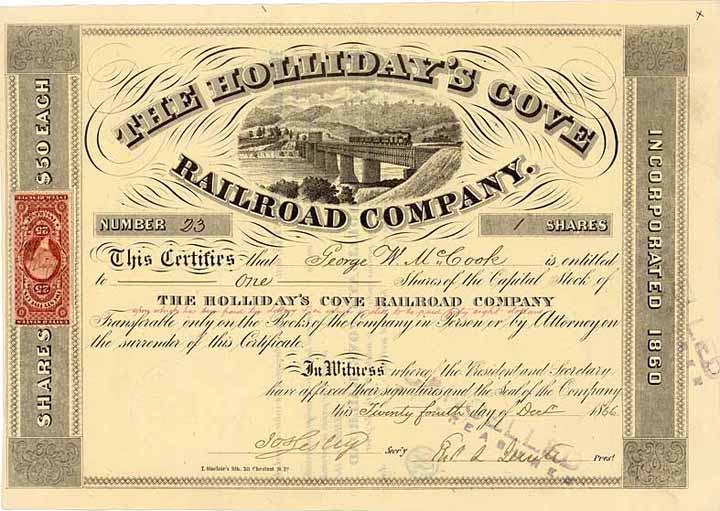 THE HOLLIDAY'S COVE
RAILROAD COMPANY.
NUMBER 23
1 SHARES
This Certifies that George W. McCook is entitled
to one Shares of the Capital Stock of
THE HOLLIDAY'S COVE RAILROAD COMPANY
Transferable only on the Books of the Company in Person or by Attorney on
the surrender of this Certificate.
In Witness whereof the President and Secretary
have affixed their signatures and the Seal of the Company
this Twenty fourth day of Dec 1866
Sec'y
Prest
T. Sinclair's lith.
SHARES $50 EACH
INCORPORATED 1860
25
25
x